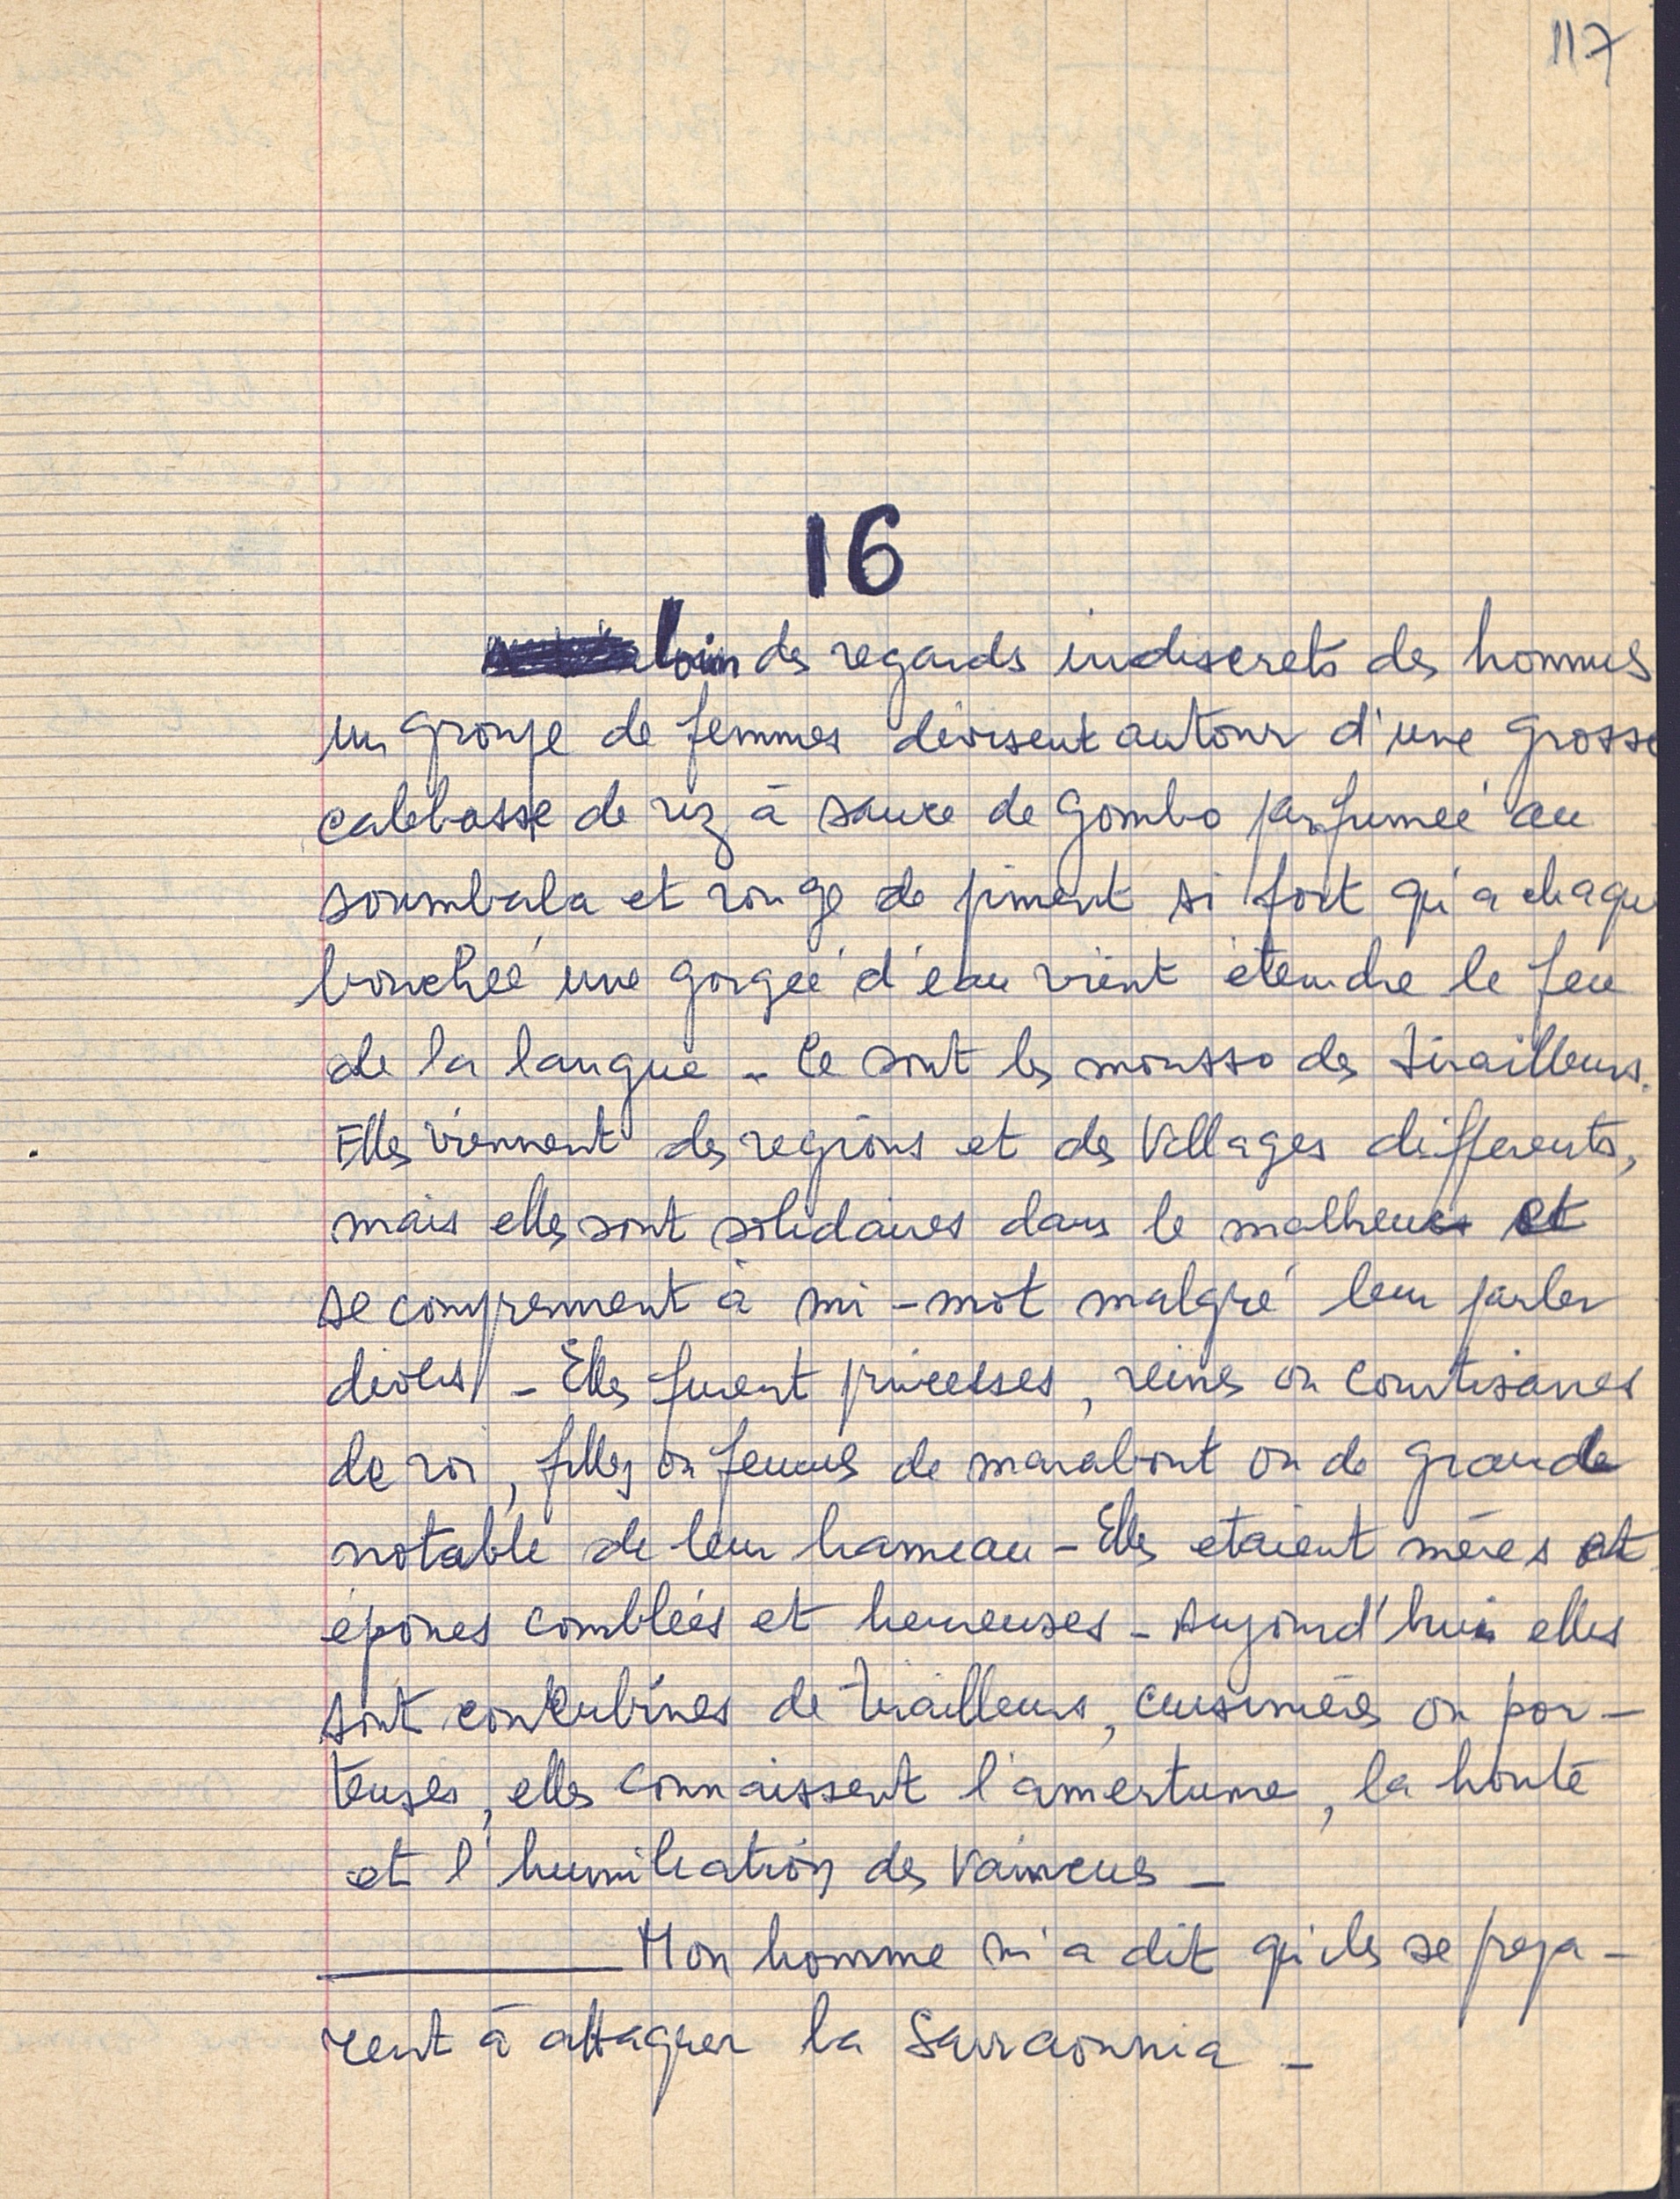 117
16
loin des regards indiscrets des hommes
un groupe de femmes devisent autour d'une grosse
calebasse de riz à sauce de gombo parfumée au
soumbala et rouge de piment si fort qu'a chaque
bouchée une gorgée d'eau vient éteindre le feu
de la langue - Ce sont les mousso des tirailleurs.
Elles viennent des regions et des villages differents,
mais elles sont solidaires dans le malheur et
se comprennent à mi-mot malgré leur parler
divers - Elles furent princesses, reines ou courtisanes
de roi, filles ou femmes de marabout ou de grande
notable de leur hameau - Elles etaient mères et
épouses comblées et heureuses - Aujourd'hui elles
sont concubines de tirailleurs, cuisinières ou por-
teuses, elles connaissent l'amertume, la honte
et l'humiliation des vaincus -
Mon homme m'a dit qu'ils se prepa-
rent à attaquer la Sarraounia -